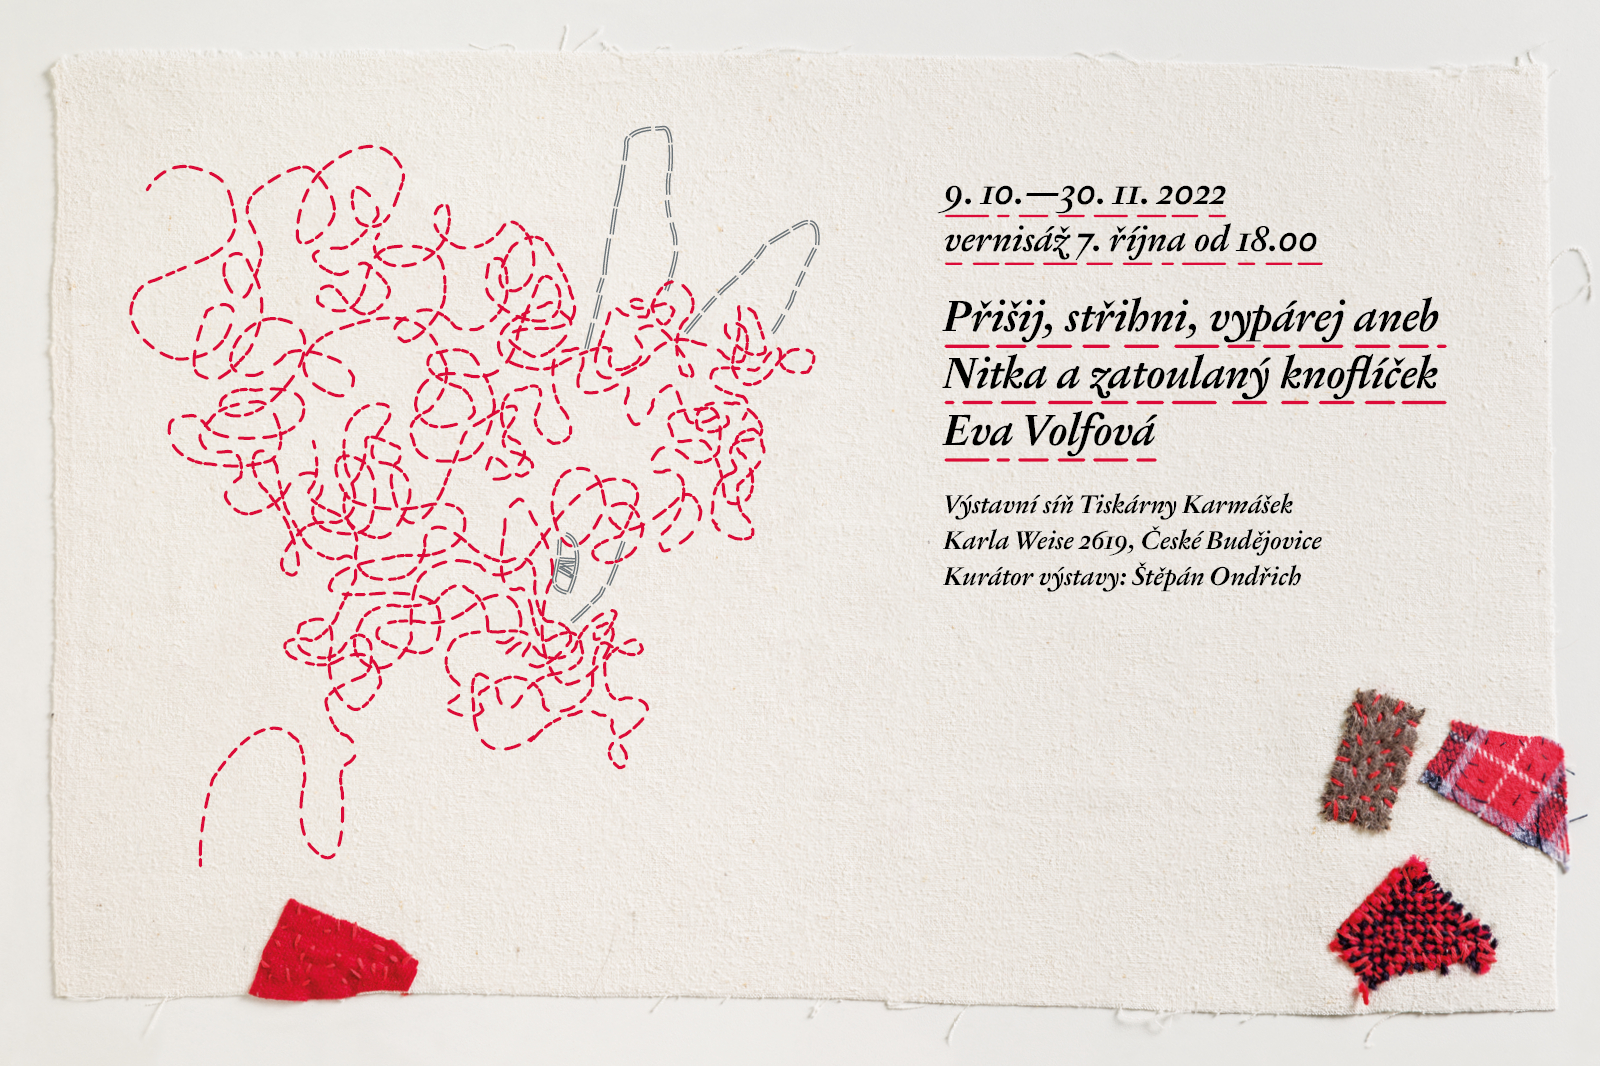 9. 10.—30. 11. 2022
vernisáž 7. října od 18.00
Přišij, střihni, vypárej aneb
Nitka a zatoulaný knoflíček
Eva Volfová
Výstavní síň Tiskárny Karmášek
Karla Weise 2619, České Budějovice
Kurátor výstavy: Štěpán Ondřich